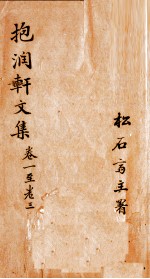 抱润軒文集
卷一至卷三
松石斋主署